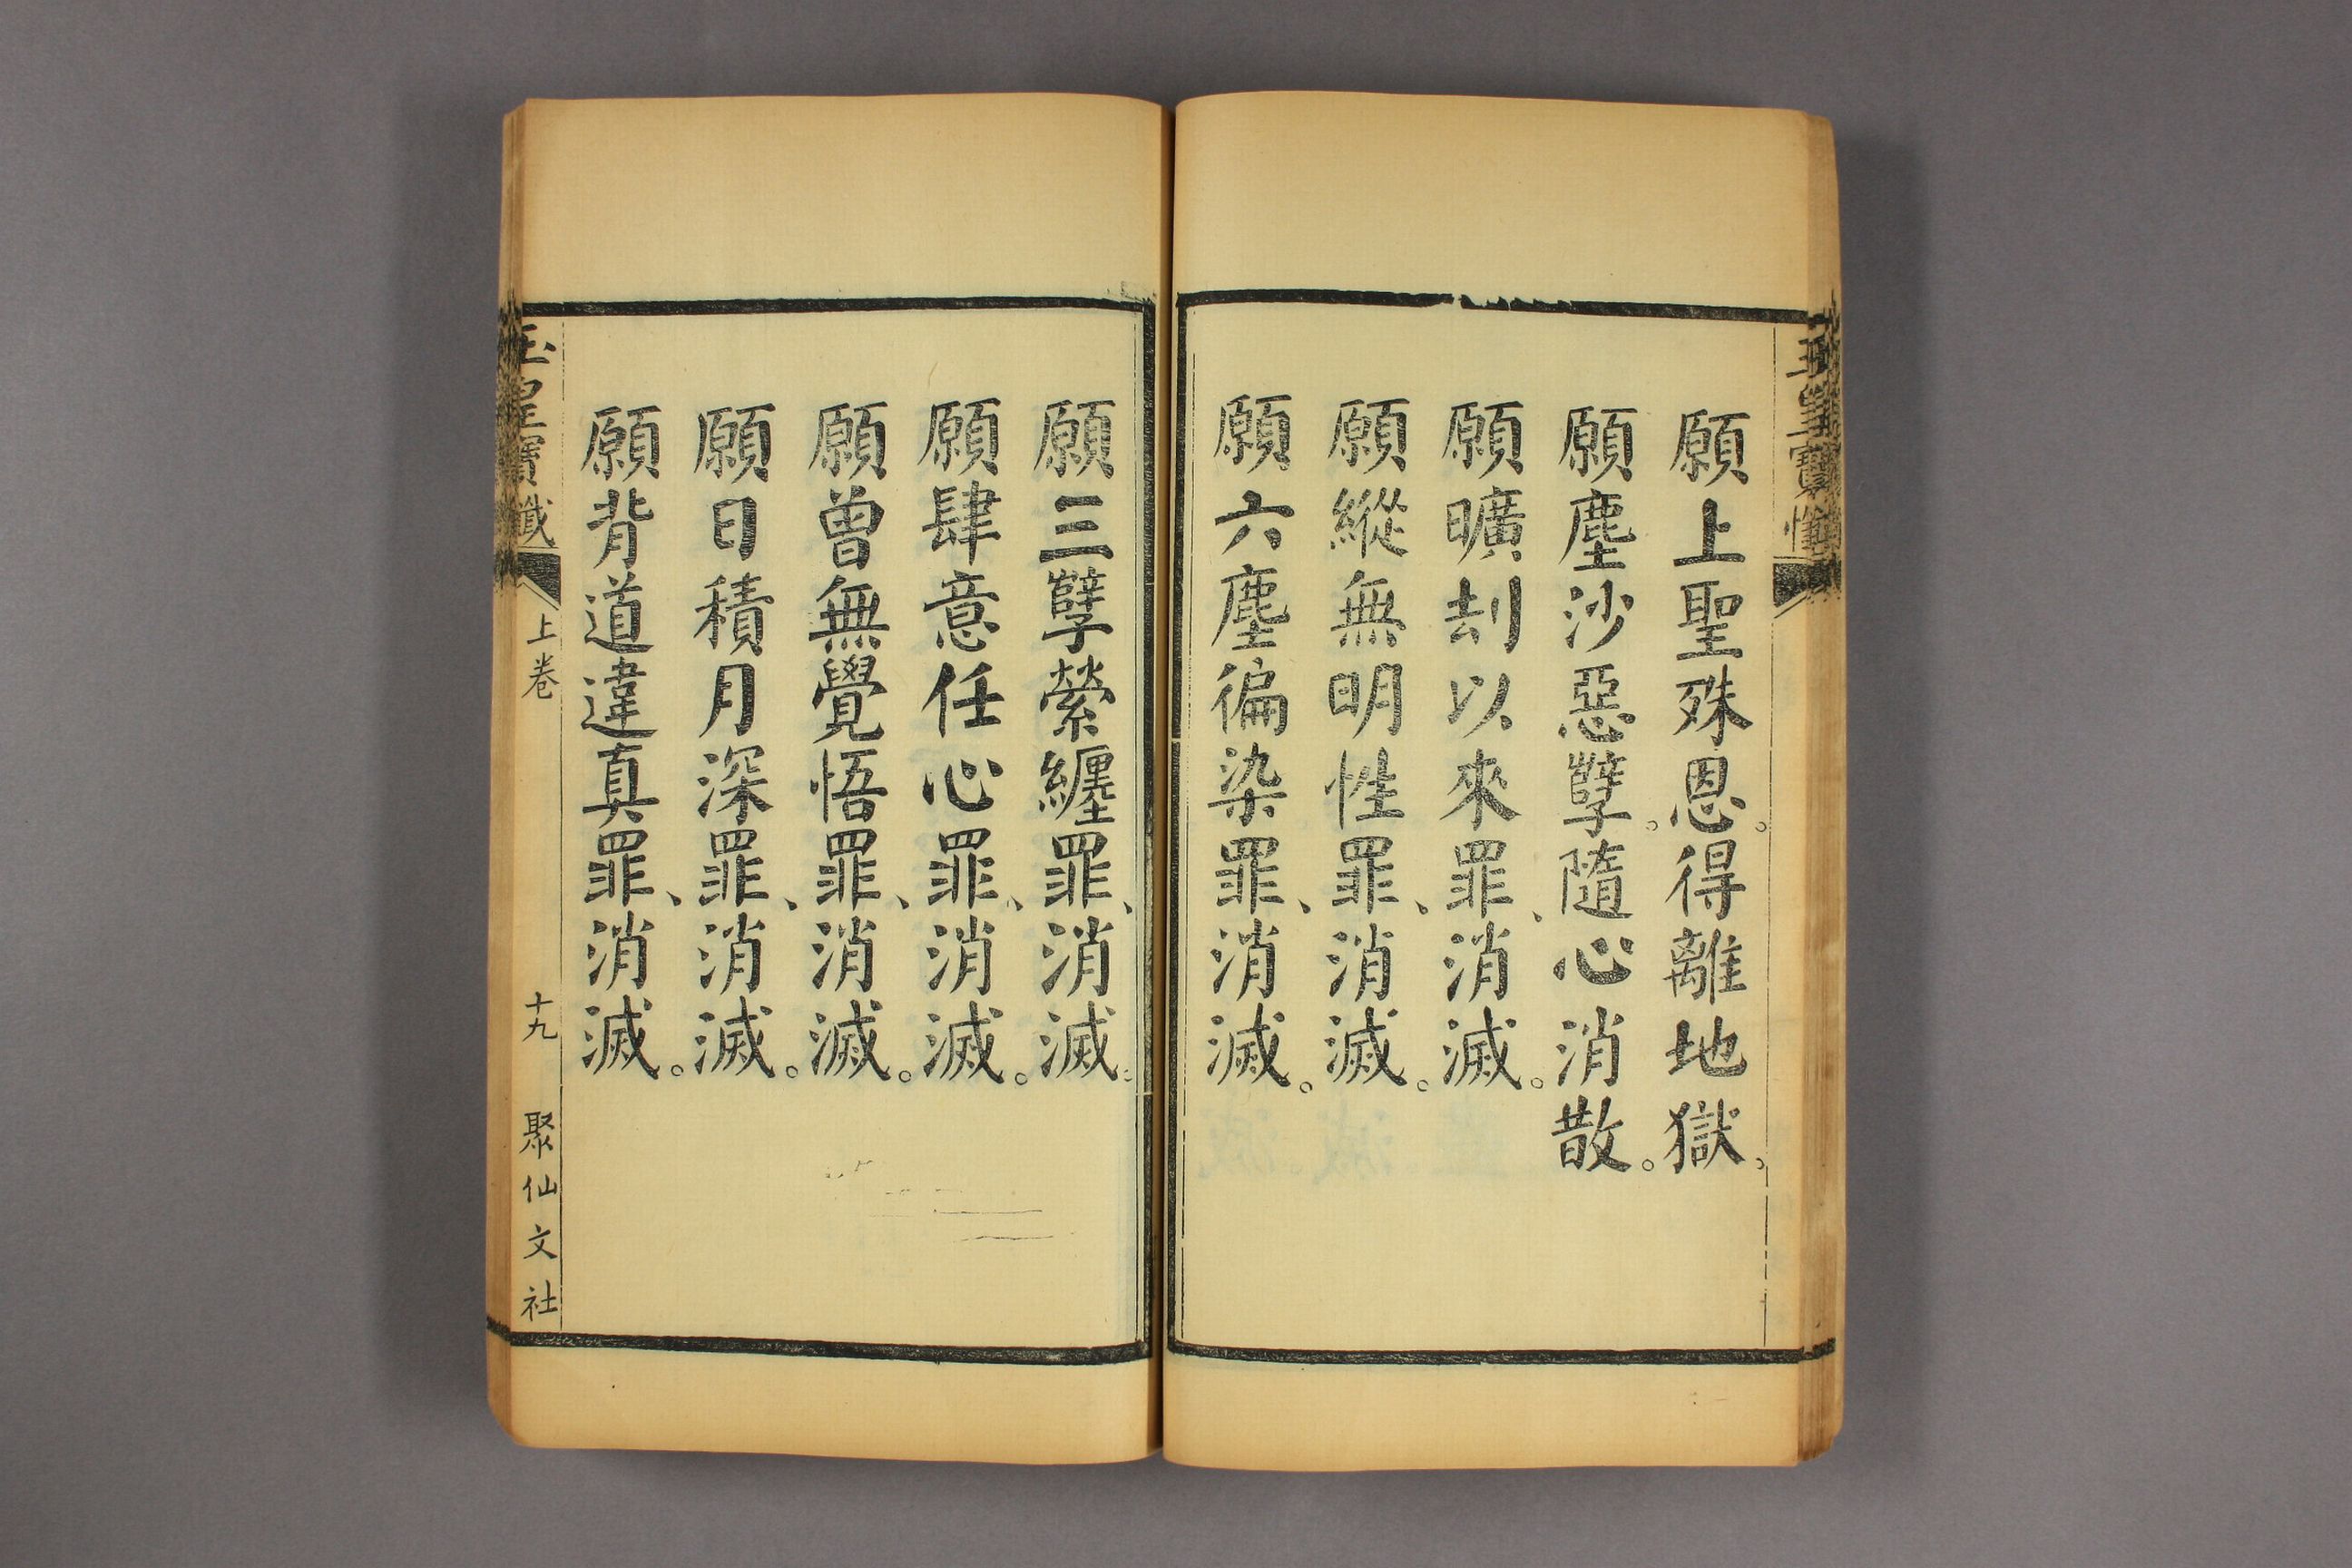 玉皇寶懺
願上聖殊恩。得離地獄。
願塵沙惡孽。隨心消散。
願曠刦以來罪、消滅。
願縱無明性罪、消滅。
願六塵徧染罪、消滅。
願三孽縈纏罪、消滅。
願肆意任心罪、消滅。
願曾無覺悟罪、消滅。
願日積月深罪、消滅。
願背道違真罪、消滅。
玉皇寶懺 上卷 十九 聚仙文社